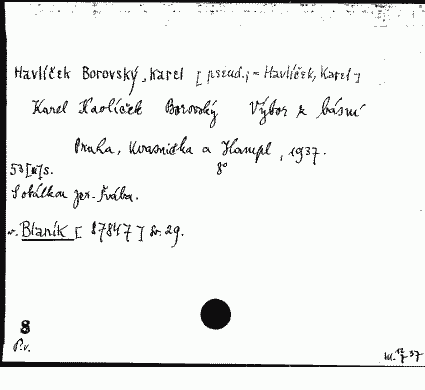 Havlíček Borovský, Karel [pseud.; = Havlíček, Karel]
Karel Havlíček Borovský Výbor z básní
Praha, Kvasnička a Hampl, 1937.
53 [] s. 8°
S obálkou Jar. Švába.
v. Blaník [87847] Sv. 29.
8
P.v.
37